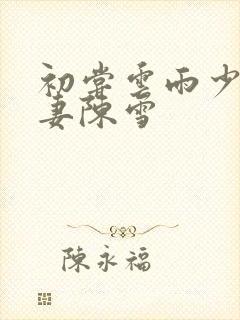 初嘗雲雨少
妻陳雪
陳永福